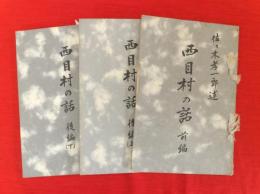 佐々木孝一郎述
西目村の話
前編
西目村の話
後編(上)
西目村の話
後編(下)